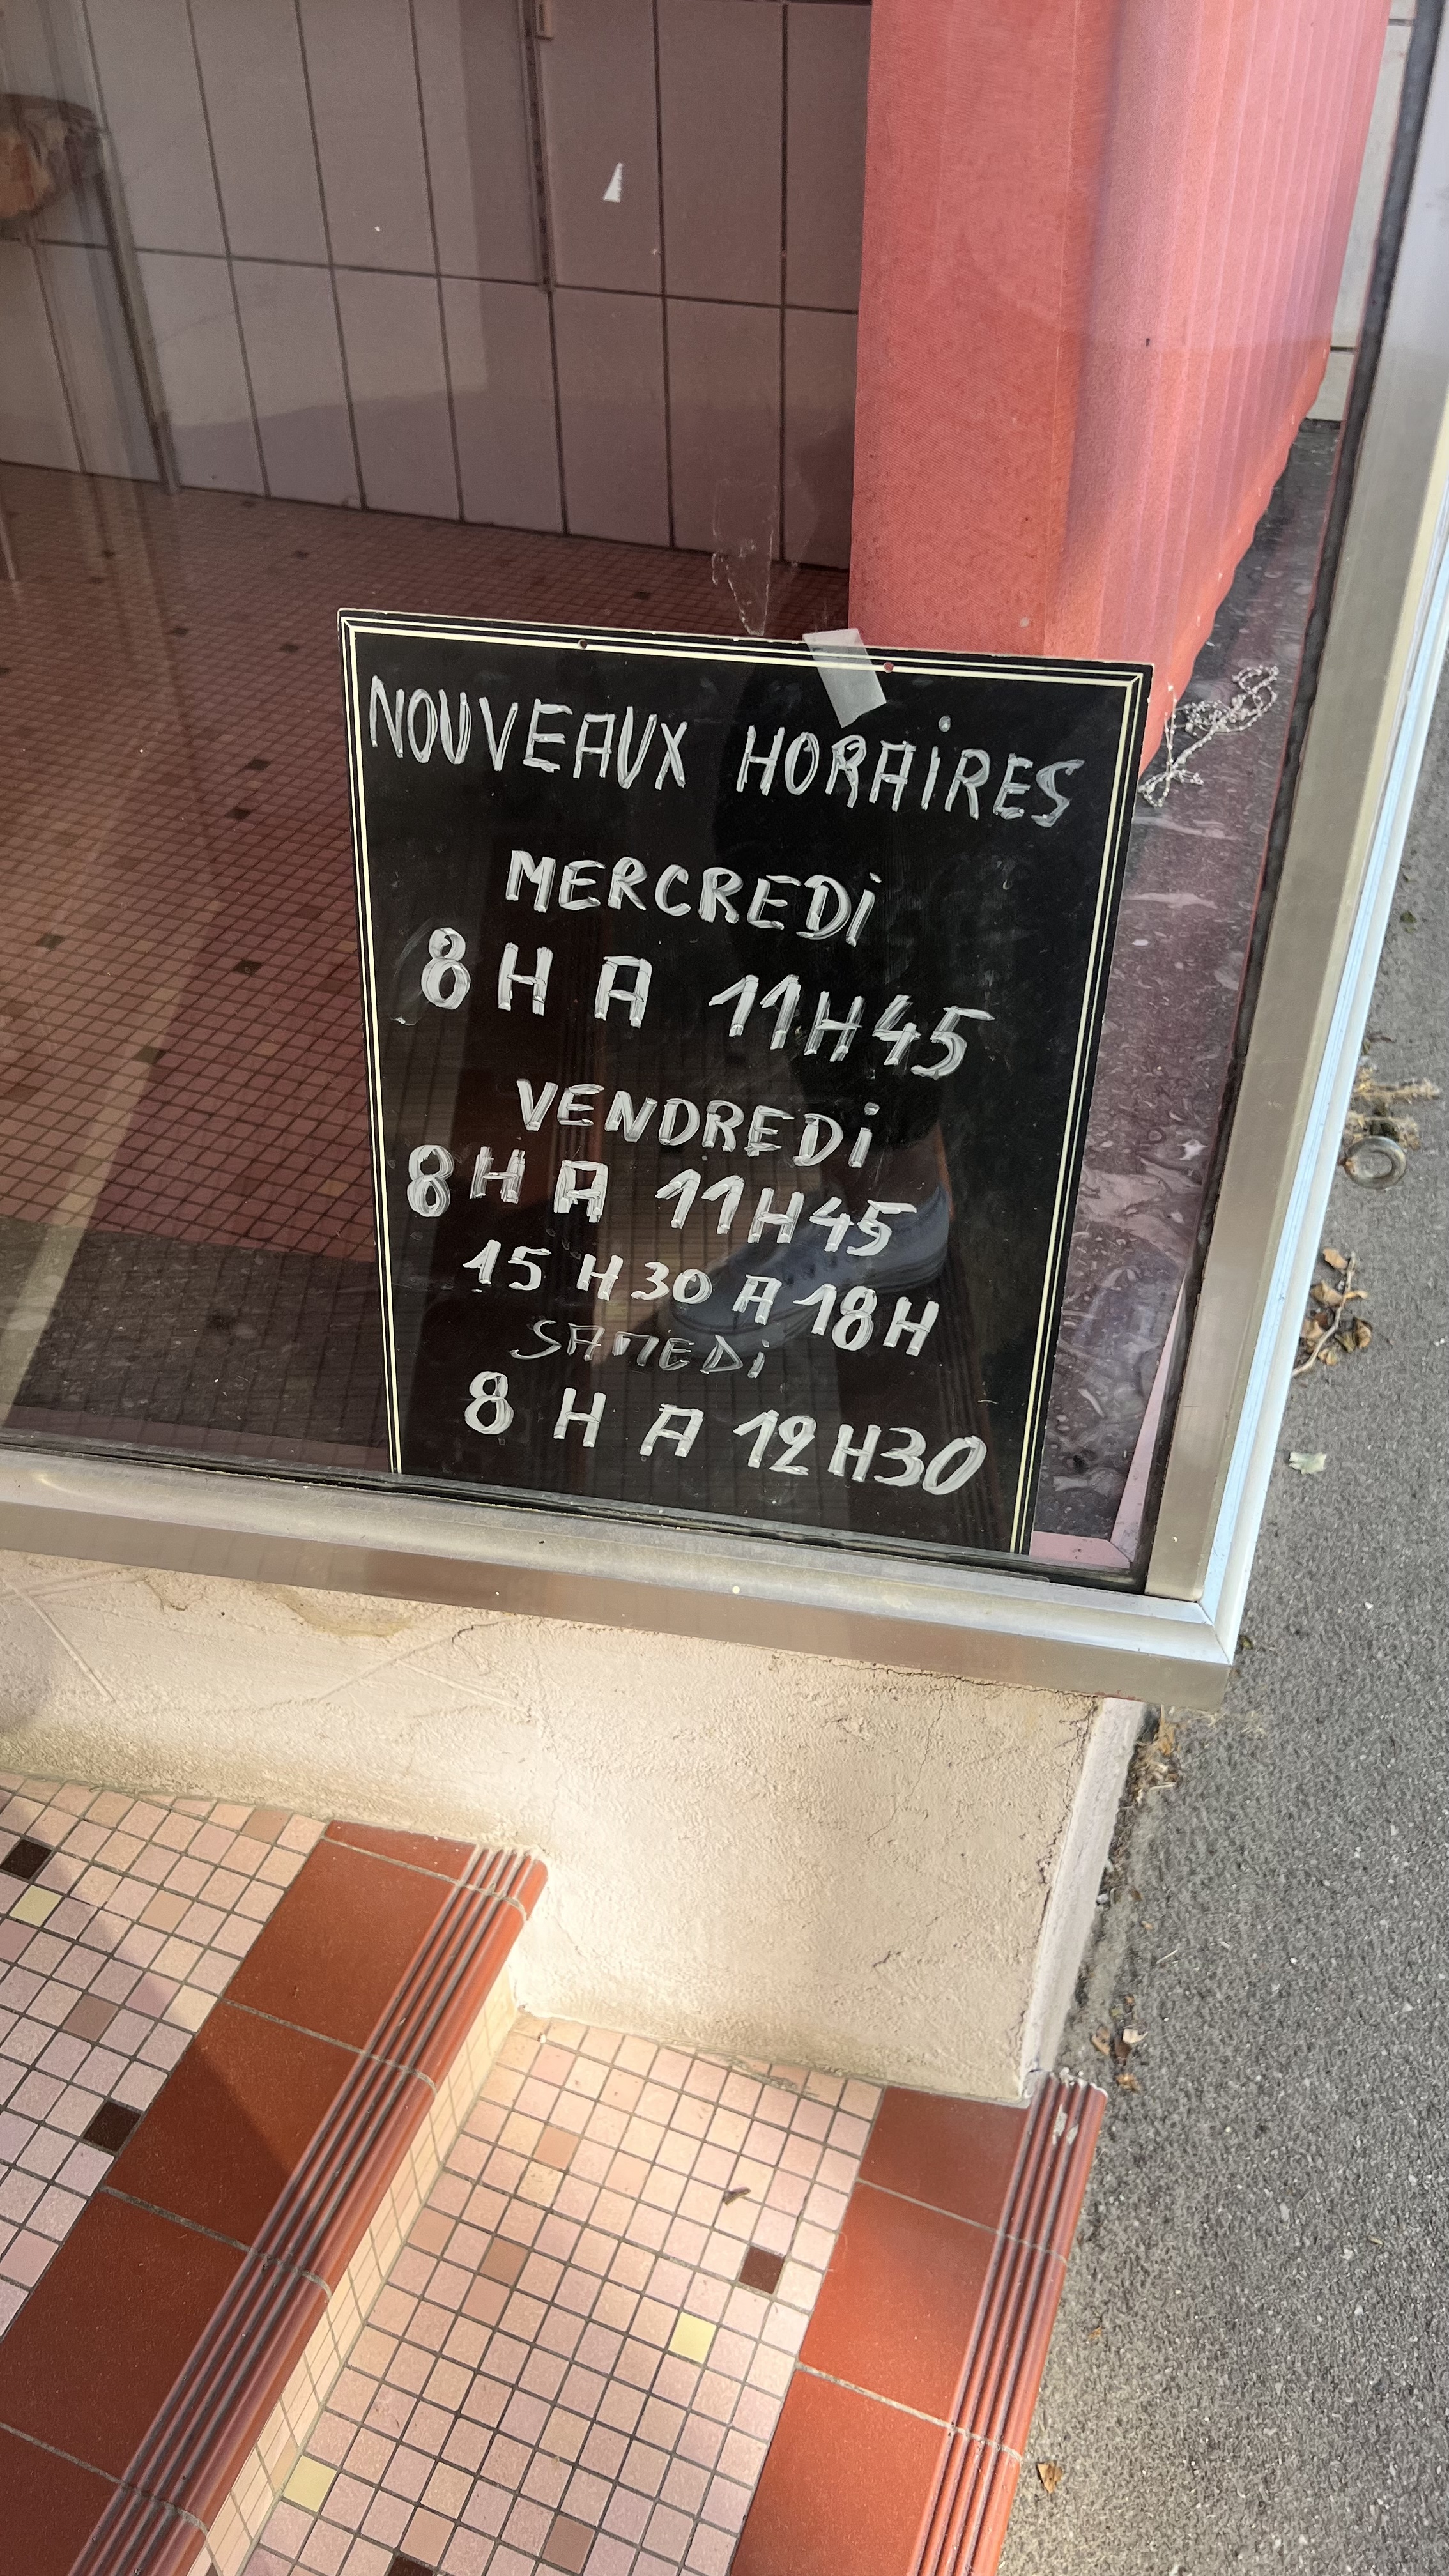 NOUVEAUX HORAiRES
MERCREDi
8 H A 11H45
VENDREDi
8 H A 11H45
15 H 30 A 18H
SAMEDi
8 H A 12H30